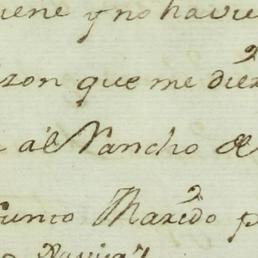 iene y no havie
zon que me diez
a al Rancho de
unto Maxido p